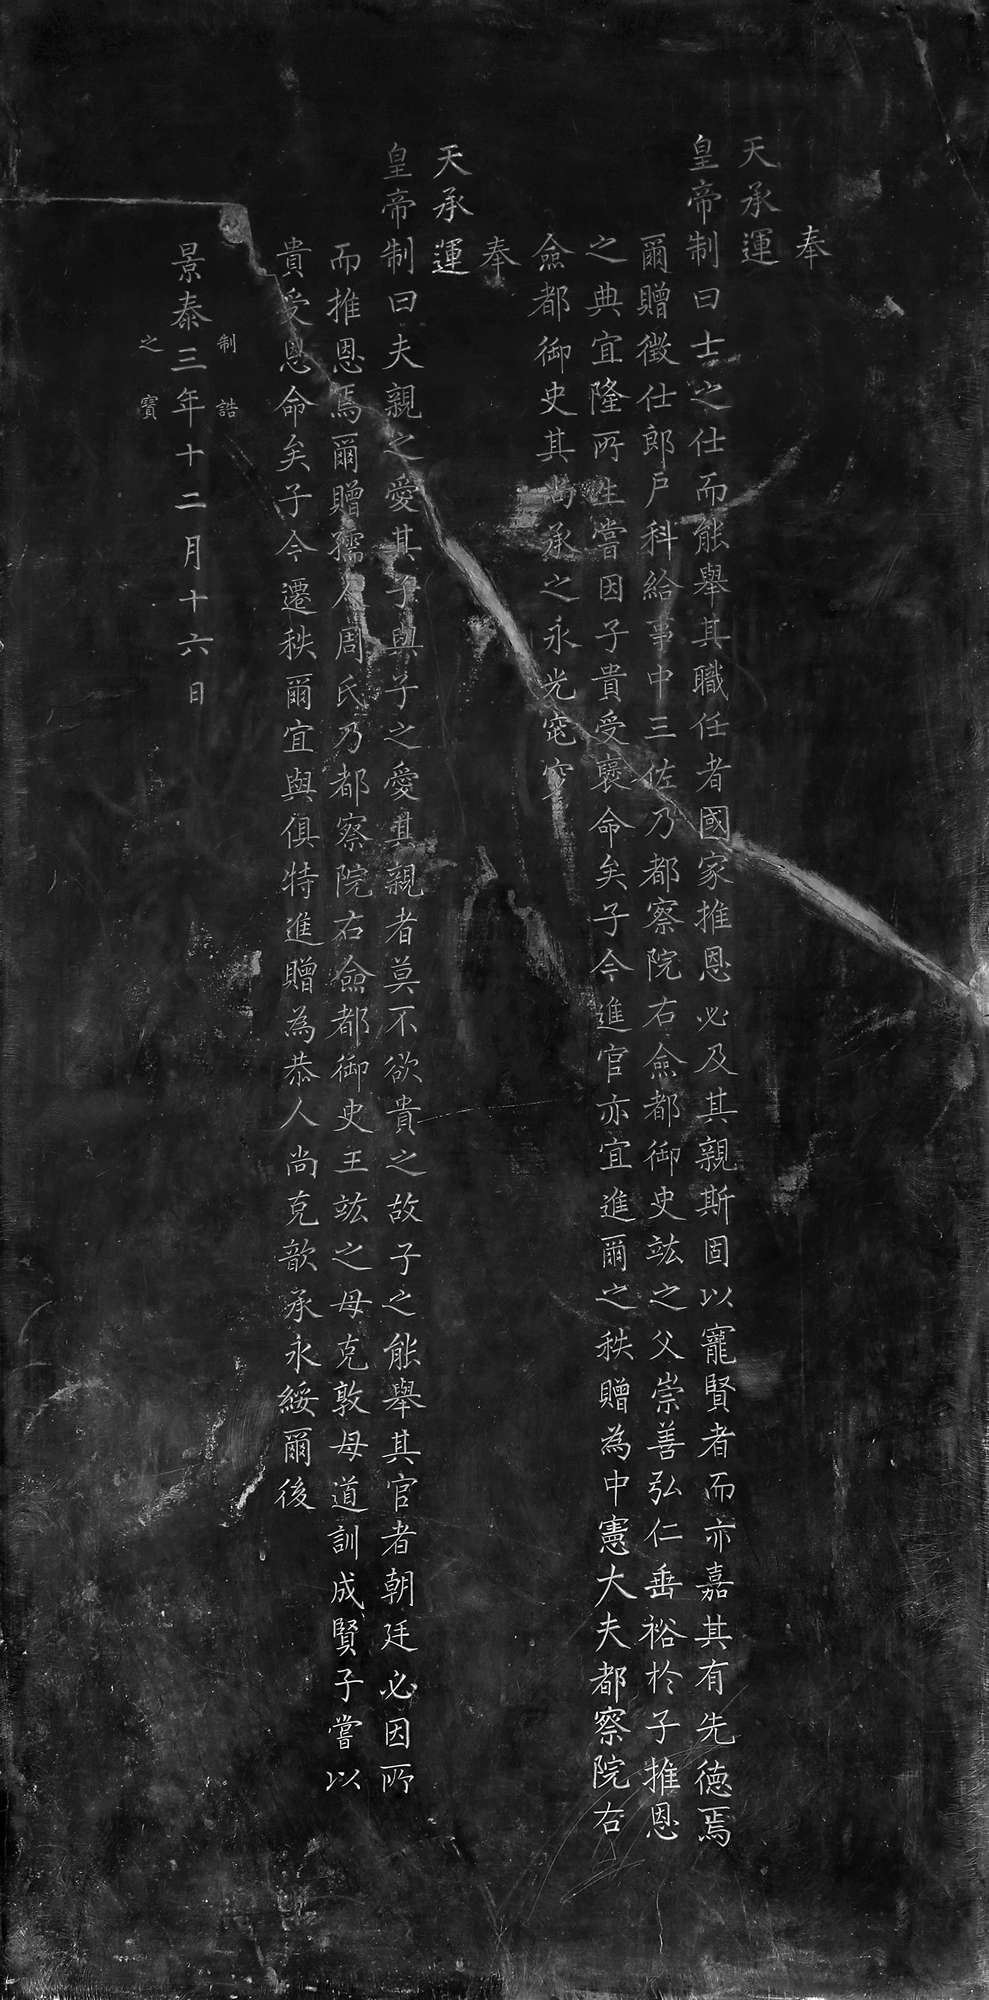 奉
天承運
皇帝制曰士之仕而能舉其職任者國家推恩必及其親斯固以寵賢者而亦嘉其有先德焉
爾贈徵仕郎戶科給事中三佐乃都察院右僉都御史竑之父崇善弘仁垂裕於子推恩
之典宜隆所生嘗因子貴受褒命矣子今進官亦宜進爾之秩贈為中憲大夫都察院右
僉都御史其尚承之永光窀穸
奉
天承運
皇帝制曰夫親之愛其子與子之愛其親者莫不欲貴之故子之能舉其官者朝廷必因所
而推恩焉爾贈孺人周氏乃都察院右僉都御史王竑之母克敦母道訓成賢子嘗以
貴受恩命矣子今遷秩爾宜與俱特進贈為恭人尚克歆承永綏爾後
制誥
景泰三年十二月十六日
之寶